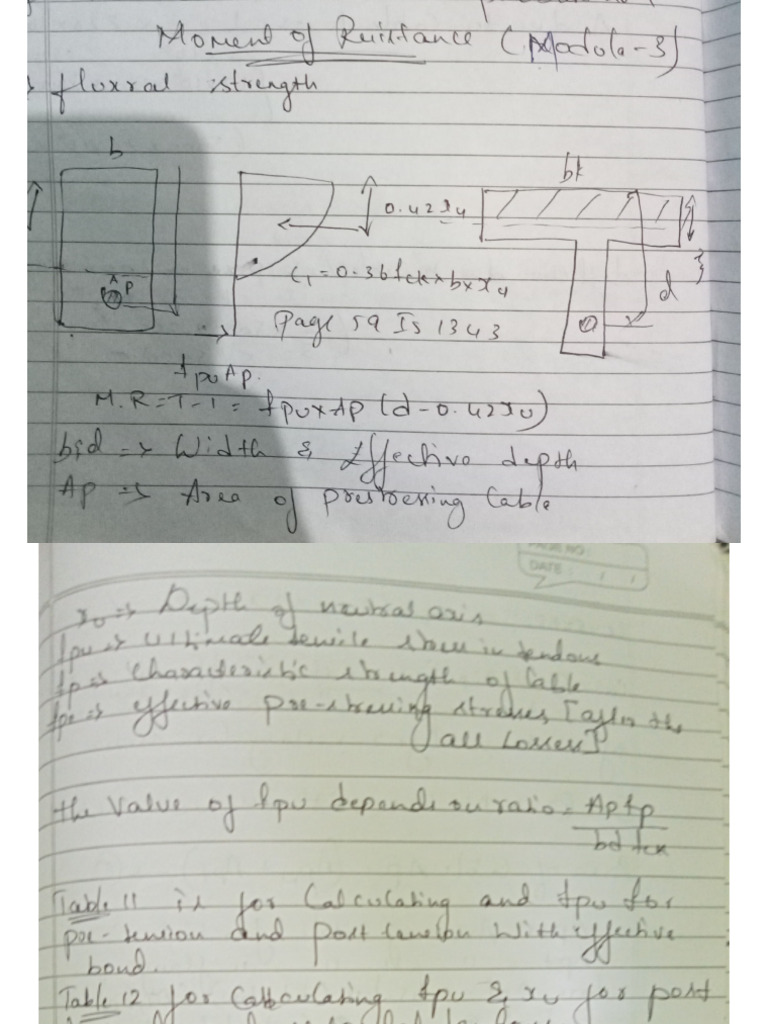 Moment of Ruisstance (Modula-3)
fluxral strength
b
bf
0.42xu
A P
C1=0.36fck×b×xu
d
Page 59 Is 1343
fpuAp.
M.R=T-1= fpu×Ap (d-0.42xu)
b;d => Width & Effective depth
Ap => Area of prestressing Cable
DATE : / /
xu => Depth of neutral axis
fpu => Ultimate tensile stress in tendons
fp => Characteristic strength of Cable
fpe => effective pre-stressing stresses [after the
all Losses]
the value of fpu depends on ratio = Apfp
bd fck
Table 11 is for Calculating and fpu for
pre-tension and post tension with effective
bond.
Table 12 for Calculating fpu & xu for post